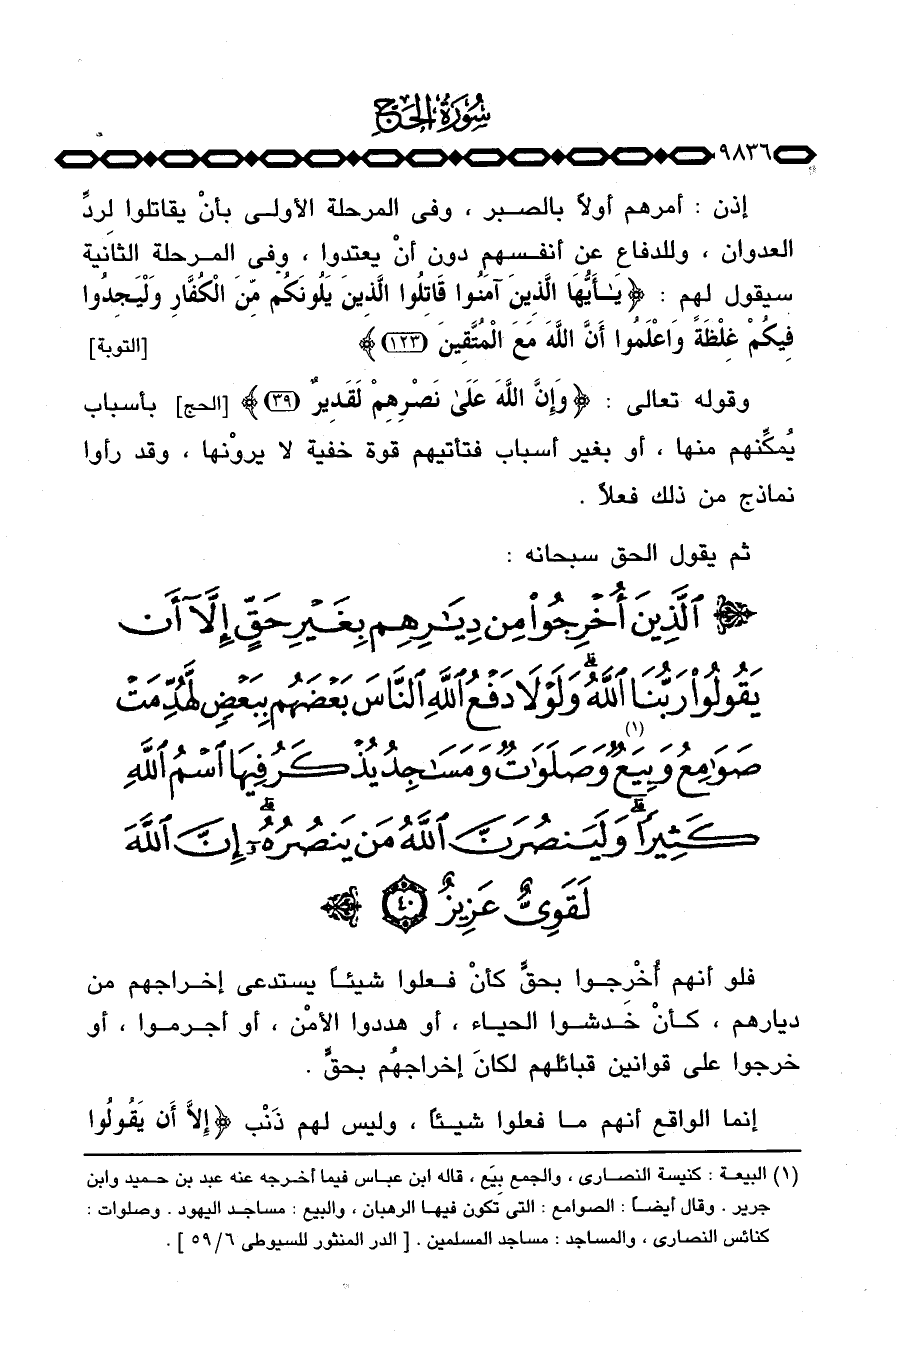 سُورَةُ الحَجِّ
٩٨٣٦
إذن : أمرهم أولاً بالصبر ، وفى المرحلة الأولى بأنْ يقاتلوا لردِّ
العدوان ، وللدفاع عن أنفسهم دون أنْ يعتدوا ، وفى المرحلة الثانية
سيقول لهم : ﴿ يَـٰأَيُّهَا الَّذِينَ آمَنُوا قَاتِلُوا الَّذِينَ يَلُونَكُم مِّنَ الْكُفَّارِ وَلْيَجِدُوا
فِيكُمْ غِلْظَةً وَاعْلَمُوا أَنَّ اللَّهَ مَعَ الْمُتَّقِينَ (١٢٣) ﴾ [التوبة]
وقوله تعالى : ﴿ وَإِنَّ اللَّهَ عَلَىٰ نَصْرِهِمْ لَقَدِيرٌ (٣٩) ﴾ [الحج] بأسباب
يُمكِّنهم منها ، أو بغير أسباب فتأتيهم قوة خفية لا يروْنها ، وقد رأوا
نماذج من ذلك فعلاً .
ثم يقول الحق سبحانه :
﴿ ٱلَّذِينَ أُخْرِجُوا۟ مِن دِيَـٰرِهِم بِغَيْرِ حَقٍّ إِلَّآ أَن
يَقُولُوا۟ رَبُّنَا ٱللَّهُ ۗ وَلَوْلَا دَفْعُ ٱللَّهِ ٱلنَّاسَ بَعْضَهُم بِبَعْضٍ لَّهُدِّمَتْ
صَوَٰمِعُ وَبِيَعٌ (١) وَصَلَوَٰتٌ وَمَسَـٰجِدُ يُذْكَرُ فِيهَا ٱسْمُ ٱللَّهِ
كَثِيرًا ۗ وَلَيَنصُرَنَّ ٱللَّهُ مَن يَنصُرُهُۥٓ ۗ إِنَّ ٱللَّهَ
لَقَوِىٌّ عَزِيزٌ (٤٠) ﴾
فلو أنهم أُخْرِجوا بحقٍّ كأنْ فعلوا شيئاً يستدعى إخراجهم من
ديارهم ، كأنْ خَدشوا الحياء ، أو هددوا الأمْن ، أو أجرموا ، أو
خرجوا على قوانين قبائلهم لكانَ إخراجهُم بحقٍّ .
إنما الواقع أنهم ما فعلوا شيئاً ، وليس لهم ذَنْب ﴿ إِلاَّ أَن يَقُولُوا
(١) البيعة : كنيسة النصارى ، والجمع بِيَع ، قاله ابن عباس فيما أخرجه عنه عبد بن حميد وابن
جرير . وقال أيضاً : الصوامع : التى تكون فيها الرهبان ، والبيع : مساجد اليهود . وصلوات :
كنائس النصارى ، والمساجد : مساجد المسلمين . [ الدر المنثور للسيوطى ٥٩/٦ ] .